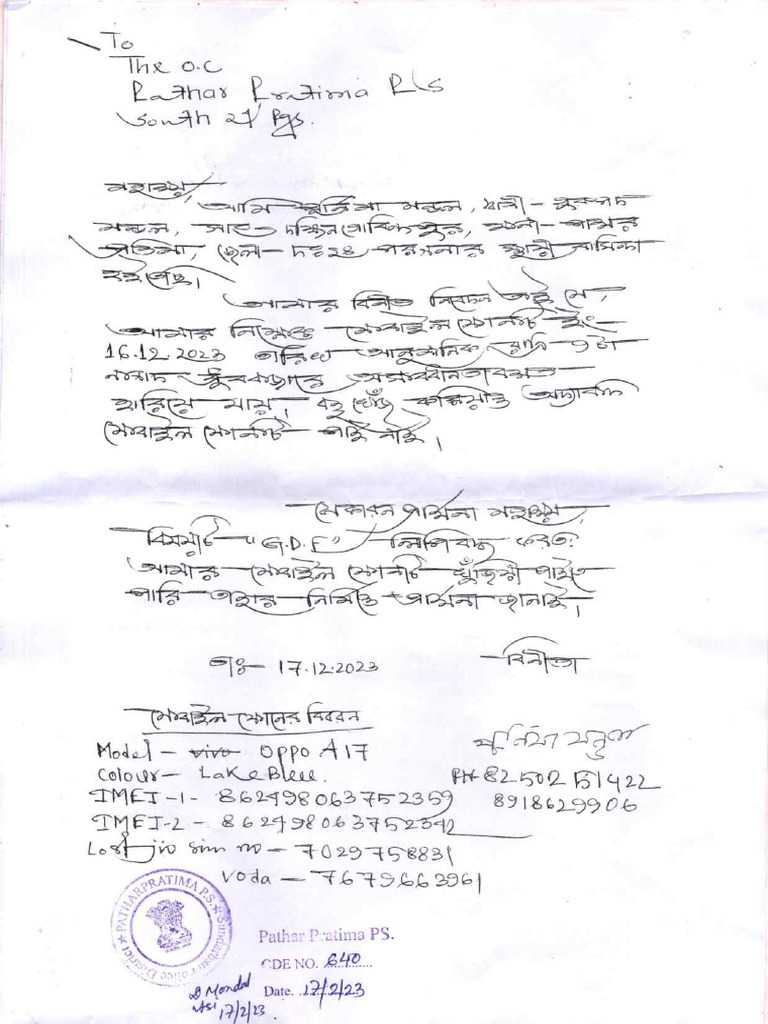 To
The O.C
Pathar Pratima P/S
South 24 Pgs.
মহাশয়,
আমি পূর্নিমা মন্ডল, স্বামী -
মন্ডল, সাং - দক্ষিন গোবিন্দপুর, থানা - পাথর
প্রতিমা, জেলা - দঃ ২৪ পরগনার স্থায়ী বাসিন্দা
হইতেছি।
আমার বিনীত নিবেদন এই যে,
আমার নিম্নোক্ত মোবাইল ফোনটি ইং-
16.12.2023 তারিখে আনুমানিক রাত্রি ৭ টা
নাগাদ অসাবধানতাবশত
হারিয়ে যায়। বহু খোঁজ করিয়াও অদ্যাবধি
মোবাইল ফোনটি পাই নাই।
সেকারন প্রার্থনা মহাশয়,
বিষয়টি "G.D.E" লিপিবদ্ধ করতঃ
আমার মোবাইল ফোনটি খুঁজিয়া পাইতে
পারি তাহার নিমিত্তে প্রার্থনা জানাই।
তাং- 17.12.2023 বিনীতা
মোবাইল ফোনের বিবরন
পূর্নিমা মন্ডল
Model - vivo OPPO A17
PH 82502 51422
Colour - Lake Bleu.
8918629906
IMEI-1- 862498063752359
IMEI-2 - 862498063752342
Lost jio sim no - 7029758831
Voda - 7679663961
PATHARPRATIMA P.S. Sundarban Police District
Pathar Pratima PS.
GDE NO. 640
Date. 17/2/23
D Mondal
ASI
17/2/23